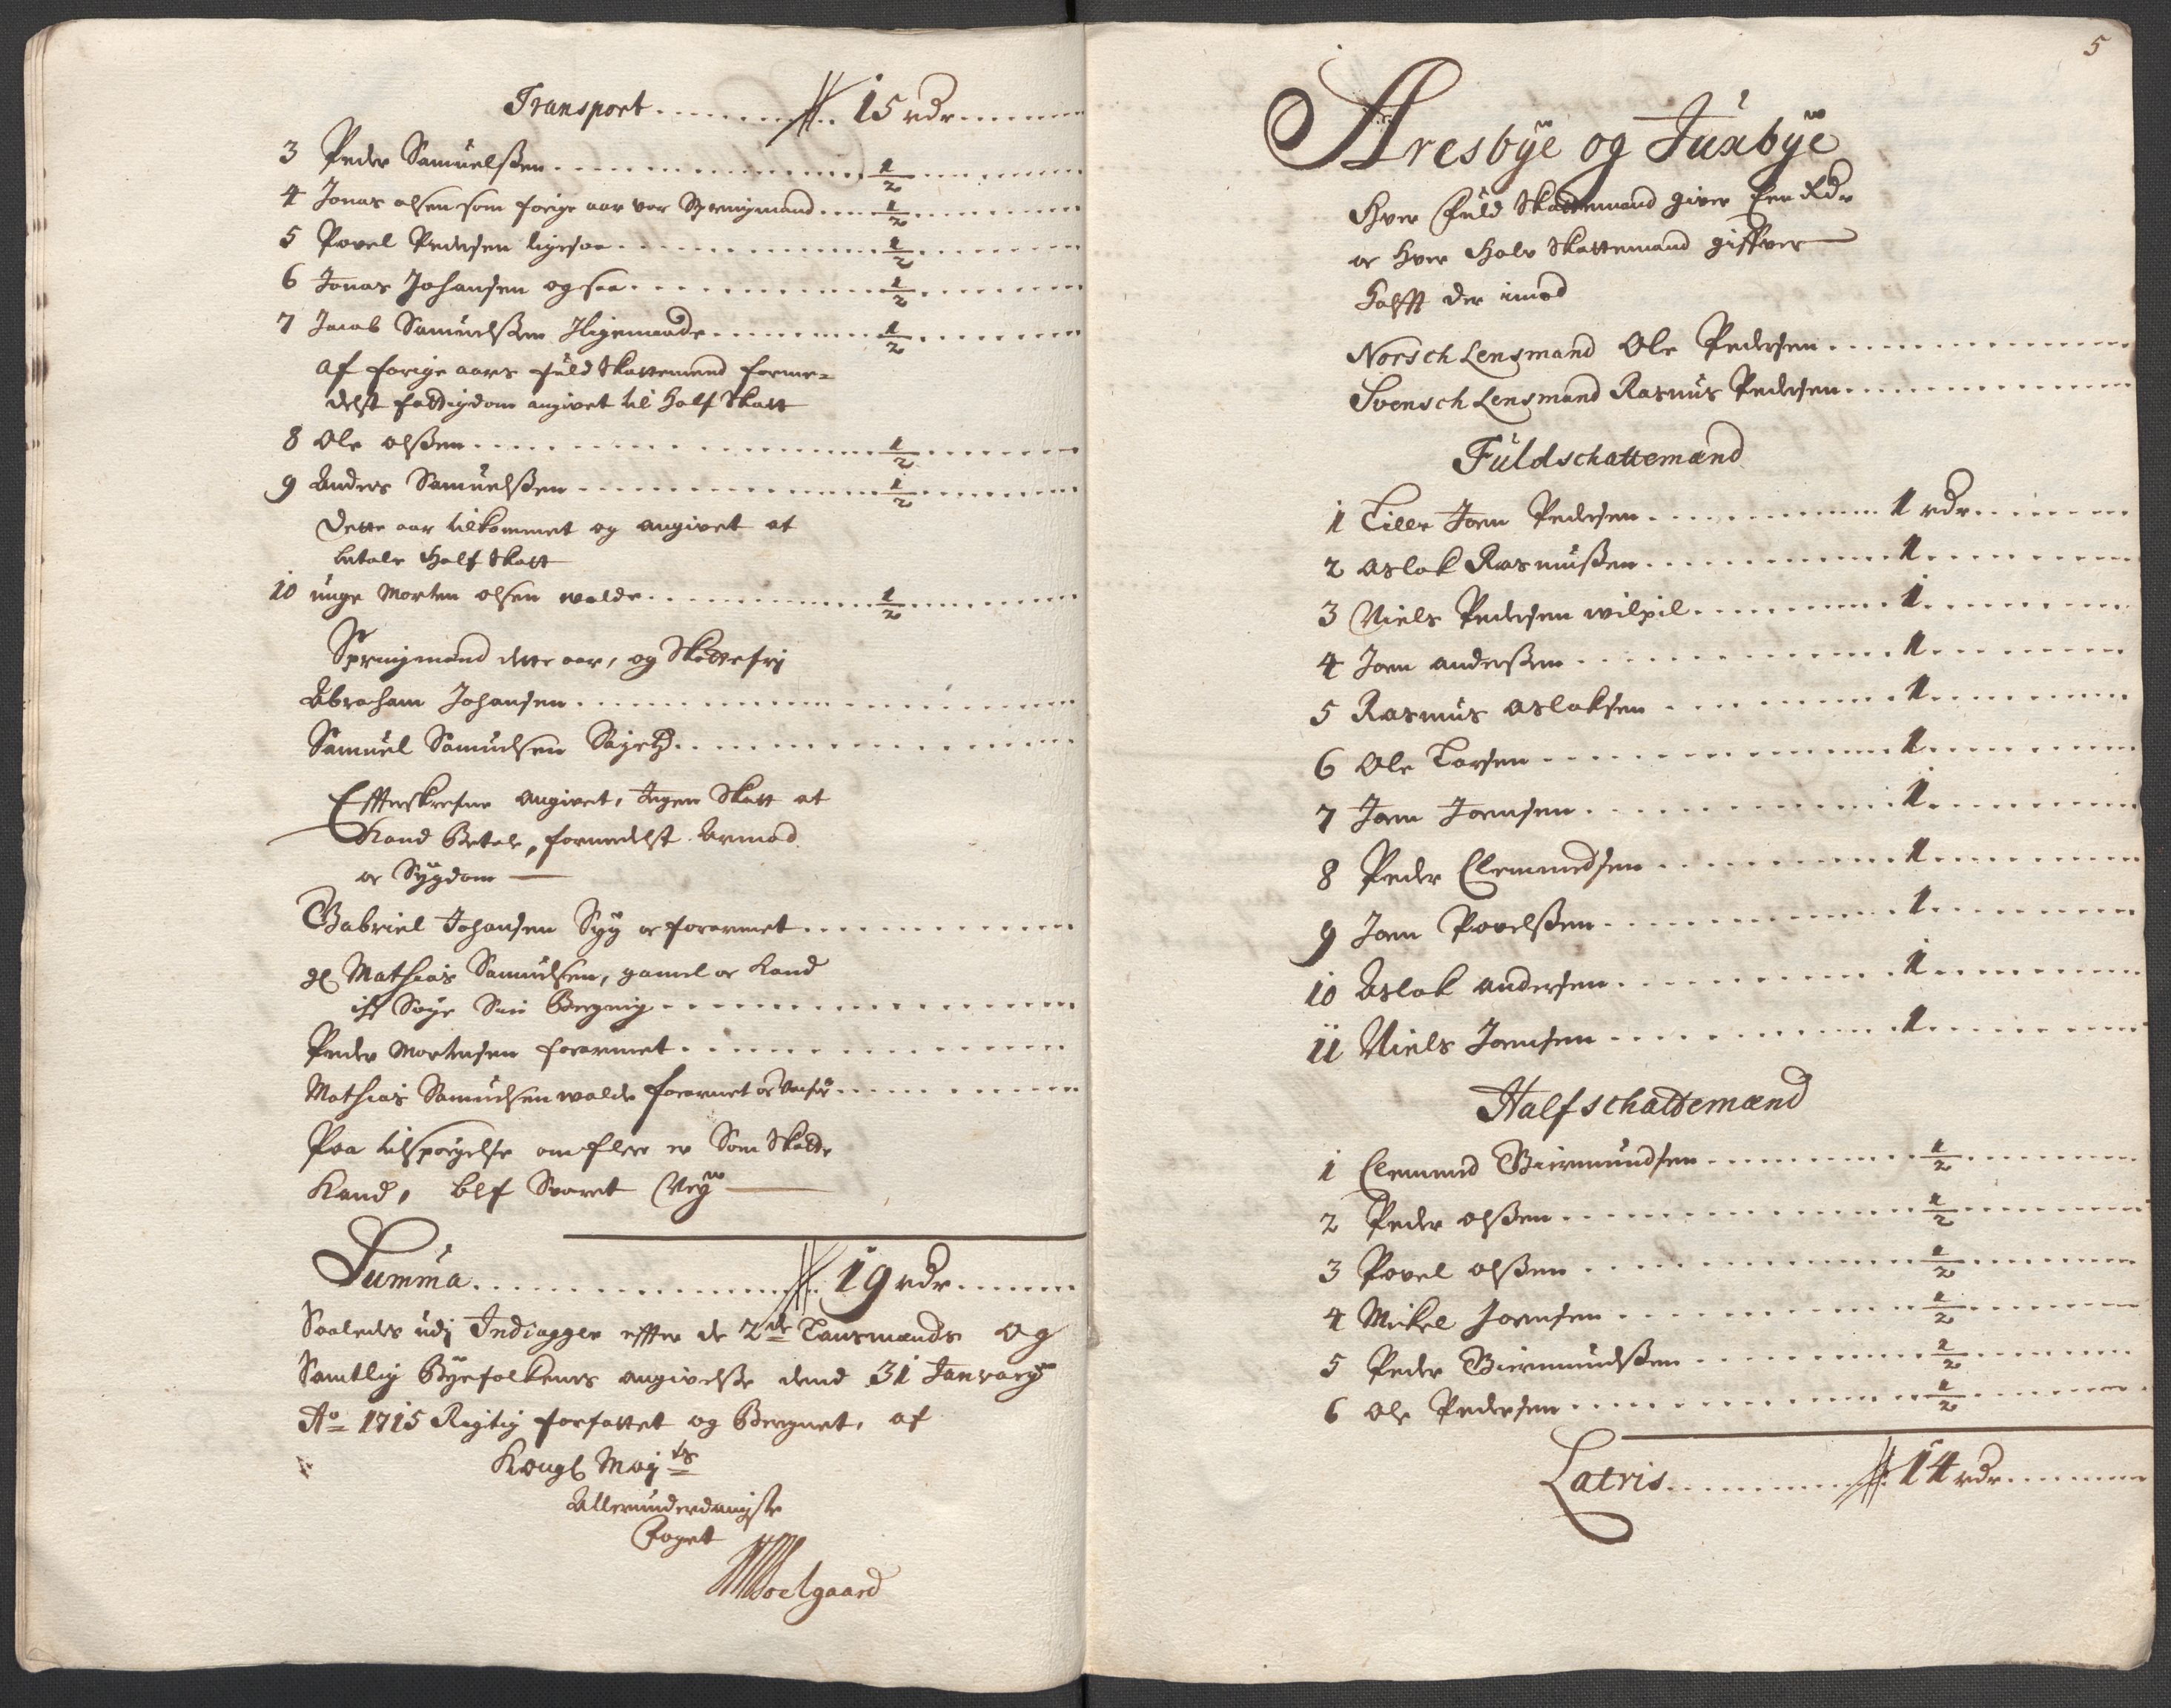 Transport ........ 15 rdr
3 Peder Samuelßen ........ 1/2
4 Jonas olsen som forige aar var Springmand .... 1/2
5 Povel Pedersen ligesaa ........ 1/2
6 Jonas Johansen ogsaa ........ 1/2
7 Jacob Samuelßen Jligemaade ........ 1/2
af forige aars fuld Skattemend forme-
delst fattigdom angivet til Half Skatt
8 Ole olßen ........ 1/2
9 Anders Samuelßen ........ 1/2
Dette aar tilkommet og angivet at
betale Half Skatt
10 unge Morten olsen walde ........ 1/2
Springmænd dette aar, og Skattefrj
Abraham Johansen ........
Samuel Samuelsen ........
Effterskrefne angivet, Ingen Skatt at
Kand Betale, formedelst Armod
oc Sygdom
Gabriel Johansen Syg oc forarmet ........
gl Mathias Samuelsen, gamel oc Kand
ej Søge Sin Bergning ........
Peder Mortensen forarmet ........
Mathias Samuelsen walde forarmet oc ........
Paa tilspørgelse om flere er Som Skatte
Kand, blef Svaret Ney
Summa ........ 19 rdr
Saaledes udj Indiagger effter de 2de Lansmænds og
Samtlig Byefolkenes angivelße dend 31 January
Ao 1715 Rigtig forfattet og Beregnet, af
Kongl Mayts
Allerunderdanigste
Foget
Soelgaard
5
Aresbÿe og Juxbÿe
Hver Fuld Skattemand giver Een Rdr
oc hver Halv Skattemand gifver
halfft der imod
Norsch Lensmand Ole Pedersen ........
Svensch Lensmand Rasmus Pedersen ........
Fuldschattemænd
1 Lille Joen Pedersen ........ 1 rdr
2 Aslak Rasmußen ........ 1
3 Niels Pedersen wilpil ........ 1
4 Joen anderßen ........ 1
5 Rasmus Aslaksen ........ 1
6 Ole Larsen ........ 1
7 Joen Joensen ........ 1
8 Peder Clemendsen ........ 1
9 Joen Povelßen ........ 1
10 Aslak andersen ........ 1
11 Niels Joensen ........ 1
Halfschattemænd
1 Clemend Guermundsen ........ 1/2
2 Peder olßen ........ 1/2
3 Povel olßen ........ 1/2
4 Mikel Joensen ........ 1/2
5 Peder Guermundßen ........ 1/2
6 Ole Pedersen ........ 1/2
Latris ........ 14 rdr